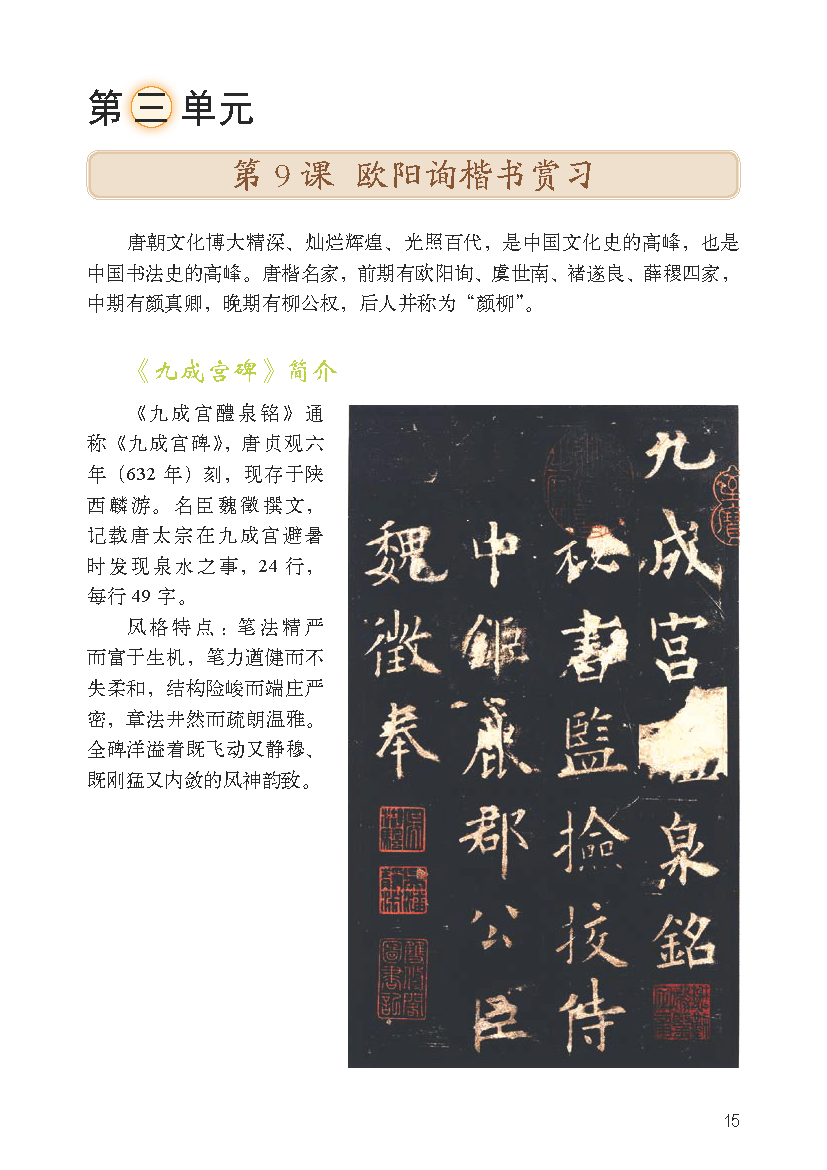 第三单元
第9课 欧阳询楷书赏习
唐朝文化博大精深、灿烂辉煌、光照百代，是中国文化史的高峰，也是
中国书法史的高峰。唐楷名家，前期有欧阳询、虞世南、褚遂良、薛稷四家，
中期有颜真卿，晚期有柳公权，后人并称为“颜柳”。
《九成宫碑》简介
《九成宫醴泉铭》通
称《九成宫碑》，唐贞观六
年（632 年）刻，现存于陕
西麟游。名臣魏徵撰文，
记载唐太宗在九成宫避暑
时发现泉水之事，24 行，
每行 49 字。
风格特点：笔法精严
而富于生机，笔力遒健而不
失柔和，结构险峻而端庄严
密，章法井然而疏朗温雅。
全碑洋溢着既飞动又静穆、
既刚猛又内敛的风神韵致。
九成宫泉銘
秘書監撿挍侍
中鉅鹿郡公臣
魏徵奉
15